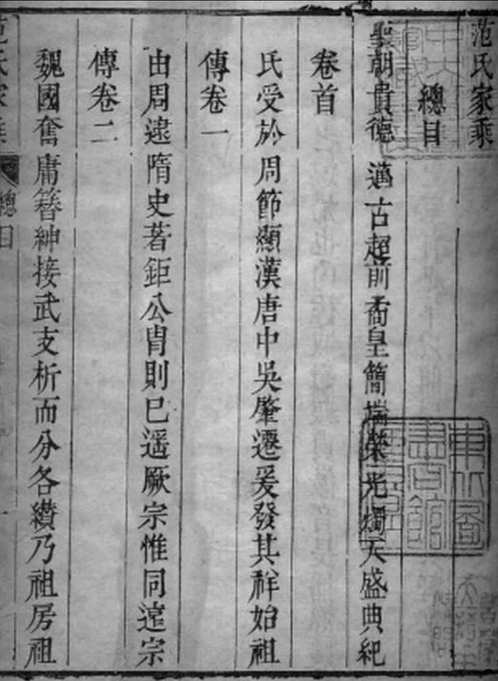 范氏家乘
總目
聖朝貴德邁古超前矞皇簡端榮光燭天盛典紀
卷首
氏受於周節顯漢唐中吳肇遷爰發其祥始祖
傳卷一
由周逮隋史著鉅公胄則已遥厥宗惟同遠宗
傳卷二
魏國奮庸簪紳接武支析而分各纘乃祖房祖
范氏家乘
總目